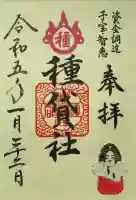 資金調達
子宝智恵
奉拝
種
種貸社
令和五年一月二十二日